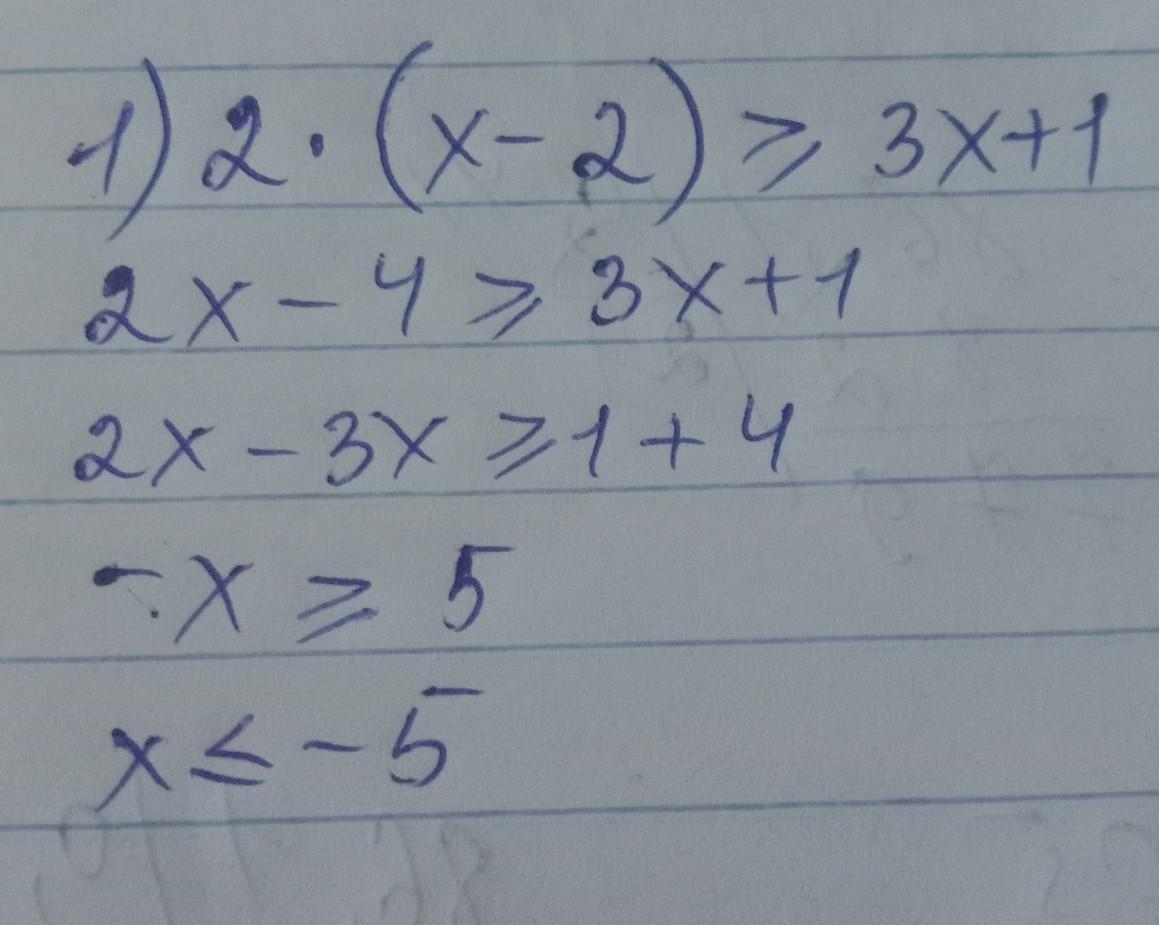 1) 2 · (x - 2) ⩾ 3x + 1
2x - 4 ⩾ 3x + 1
2x - 3x ⩾ 1 + 4
- x ⩾ 5
x ≤ - 5